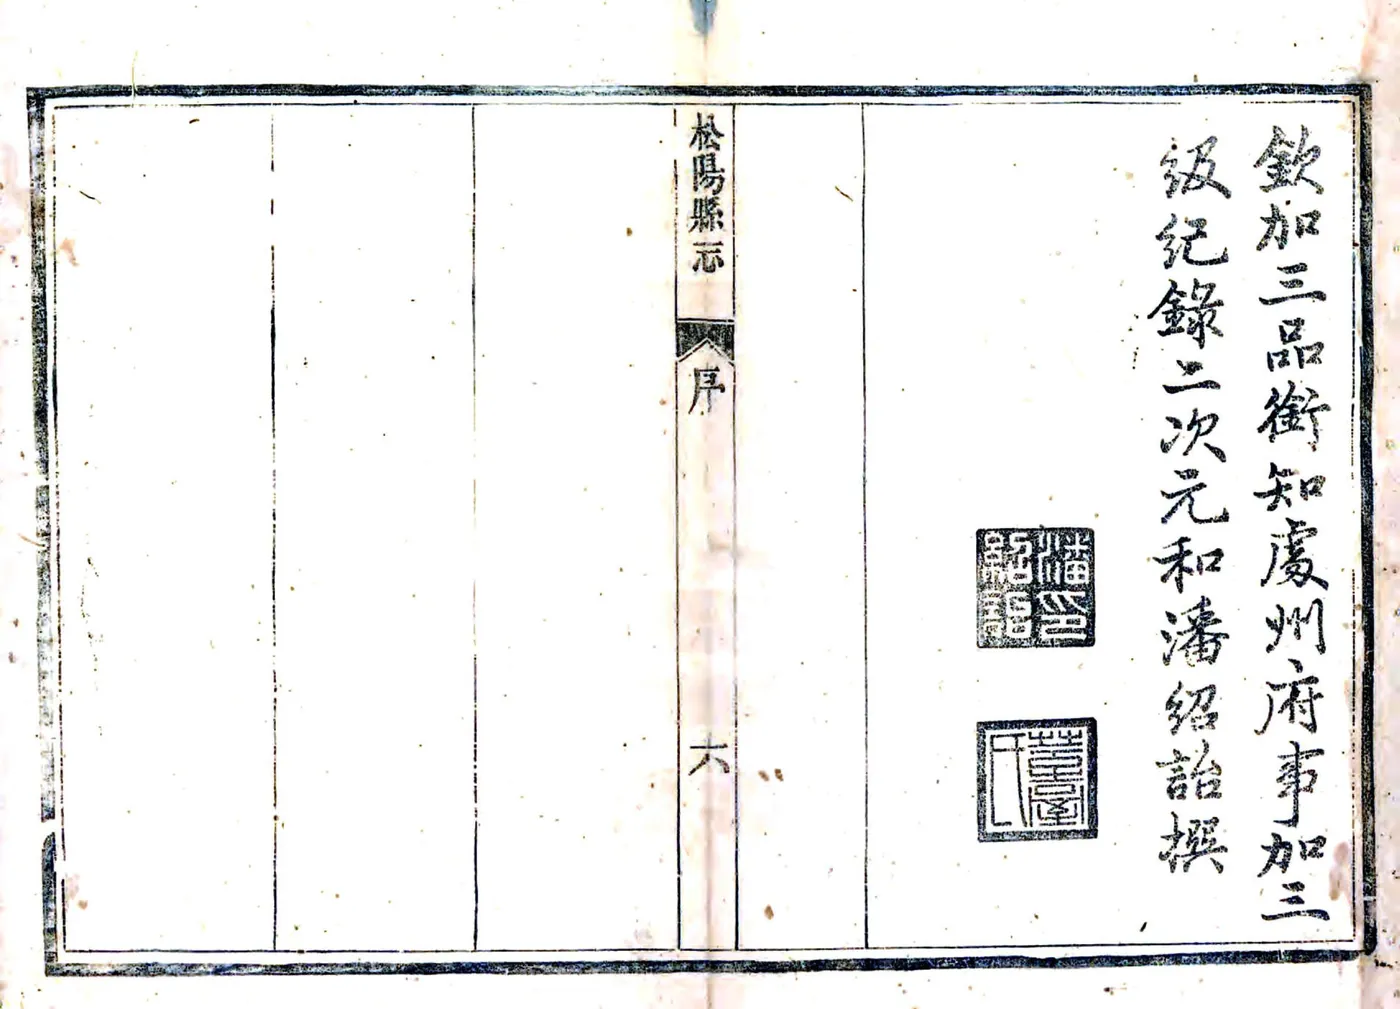 欽加三品銜知處州府事加三
級紀錄二次元和潘紹詒撰
潘印
紹詒
氏
松陽縣志
序
六